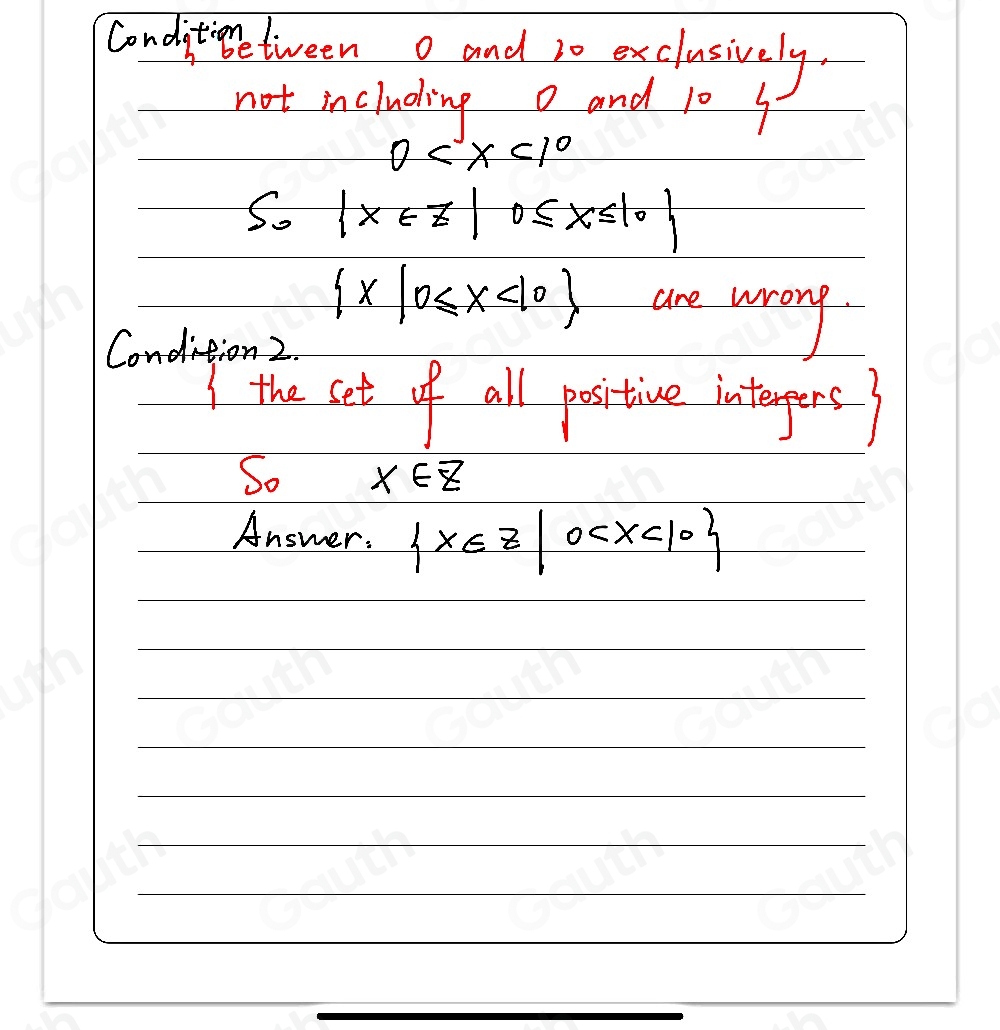 Condition 1.
{ between 0 and 10 exclusively,
not including 0 and 10 }
0 < x < 10
So {x ∈ Z | 0 ≤ x ≤ 10}
{x | 0 ≤ x < 10} are wrong.
Condition 2.
{ the set of all positive intergers }
So x ∈ Z
Answer: {x ∈ Z | 0 < x < 10}